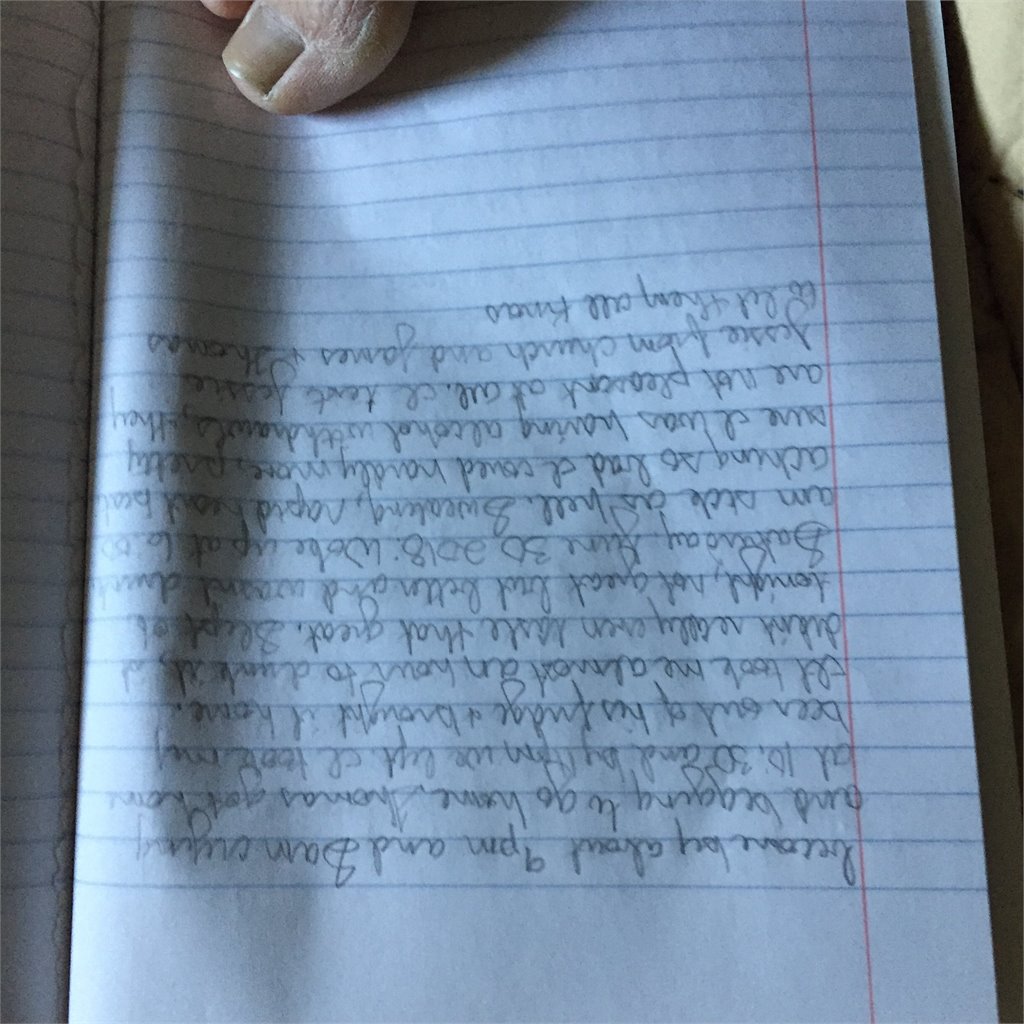 become by about 9pm and Sam crying
and begging to go home. Thomas got home
at 10:30 and by 11pm we left. I took my
beer out of his fridge & brought it home.
It took me almost an hour to drink it, it
didn't really even taste that great. Slept ok
tonight, not great but better and wasn't drunk
Saturday June 30 2018. Woke up at 6:00
am sick as hell. Sweating, rapid heart beat
aching so bad I coued hardly move, pretty
sure I was having alcohol withdrawls, they
are not pleasent at all. I text Jessie
Jessie from church and James & Thomas
to let them all know